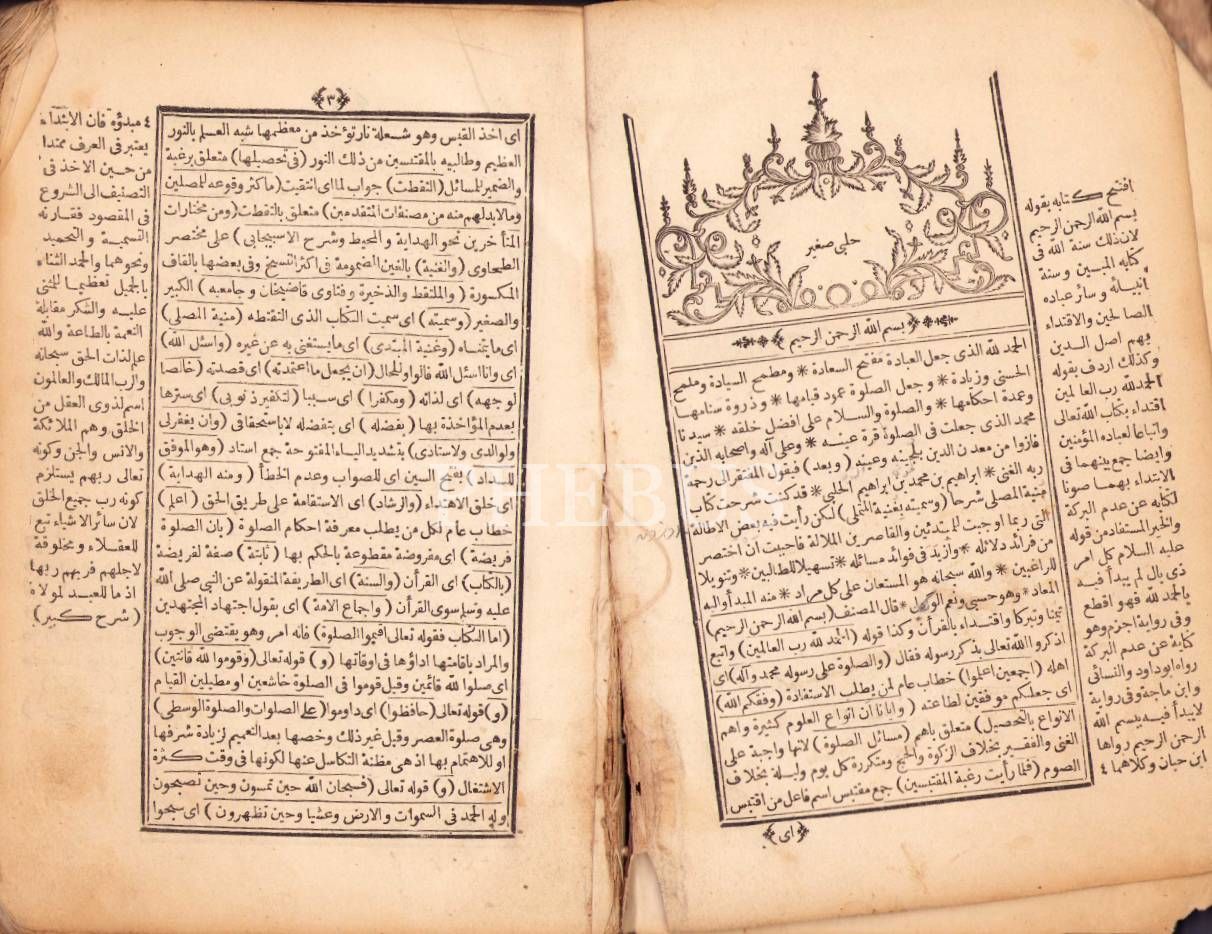 حلبى صغير
بسم الله الرحمن الرحيم
الحمد لله الذى جعل العبادة مفتح السعادة * ومطمح السيادة وملمح
الحسنى وزيادة * وجعل الصلوة عمود قيامها * وذروة سنامها
وعمدة احكامها * والصلوة والسلام على افضل خلقه * سيدنا
محمد الذى جعلت فى الصلوة قرة عينه * وعلى آله واصحابه الذين
فازوا من معدن الدين بلجينه وعينه (وبعد) فيقول المفتقر الى رحمة
ربه الغنى * ابراهيم بن محمد بن ابراهيم الحلبى * قد كنت شرحت كتاب
منية المصلى شرحا (وسميته بغنية المتملى) لكن رأيت فيه بعض الاطالة
التى ربما اوجبت للمبتدئين والقاصرين الملالة فاحببت ان اختصر
من فرائد دلائله * وازيد فى فوائد مسائله * تسهيلا للطالبين * وتنويلا
للراغبين * والله سبحانه هو المستعان على كل مراد * منه المبدأ واليه
المعاد * وهو حسبى ونعم الوكيل * قال المصنف (بسم الله الرحمن الرحيم)
تيمنا وتبركا واقتداء بالقرأن وكذا قوله (الحمد لله رب العالمين) واتبع
اذكروا الله تعالى بذكر رسوله فقال (والصلوة على رسوله محمد وآله) اى
اهله (اجمعين اعلموا) خطاب عام لمن يطلب الاستفادة (وفقكم الله)
اى جعلكم موفقين لطاعته (وايانا ان انواع العلوم كثيرة واهم
الانواع بالتحصيل) متعلق باهم (مسائل الصلوة) لانها واجبة على
الغنى والفقير بخلاف الزكوة والحج ومتكررة كل يوم وليلة بخلاف
الصوم (فلما رأيت رغبة المقتبسين) جمع مقتبس اسم فاعل من اقتبس
(اى)
افتح كتابه بقوله
بسم الله الرحمن الرحيم
لان ذلك سنة الله فى
كتابه المبين وسنة
انبيائه وسائر عباده
الصالحين والاقتداء
بهم اصل الدين
وكذلك اردف بقوله
الحمد لله رب العالمين
اقتداء بكتاب الله تعالى
واتباعا لعباده المؤمنين
وايضا جمع بينهما فى
الابتداء بهما صونا
لكتابه عن عدم البركة
والخير المستفاد من قوله
عليه السلام كل امر
ذى بال لم يبدأ فيه
بالحمد لله فهو اقطع
وفى رواية اجزم وهو
كناية عن عدم البركة
رواه ابوداود والنسائى
وابن ماجة وفى رواية
لا يبدأ فيه بسم الله
الرحمن الرحيم رواها
ابن حبان وكلاهما ٤
(٣)
اى اخذ القبس وهو شعلة نار تؤخذ من معظمها شبه العلم بالنور
العظيم وطالبيه بالمقتبسين من ذلك النور (فى تحصيلها) متعلق برغبة
والضمير للمسائل (التقطت) جواب لما اى انتقيت (ما كثر وقوعه للمصلين
وما لابد لهم منه من مصنفات المتقدمين) متعلق بالتقطت (ومن مختارات
المتأخرين نحو الهداية والمحيط وشرح الاسبيجابى) على مختصر
الطحاوى (والغنية) بالغين المضمومة فى اكثر النسخ وفى بعضها بالقاف
المكسورة (والملتقط والذخيرة وفتاوى قاضيخان وجامعيه) الكبير
والصغير (وسميته) اى سميت الكتاب الذى التقطته (منية المصلى)
اى ما يتمناه (وغنية المبتدى) اى ما يستغنى به عن غيره (واسئل الله)
اى وانا اسئل الله فالواو للحال (ان يجعل ما اعتمدته) اى قصدته (خالصا
لوجهه) اى لذاته (ومكفرا) اى سببا (لتكفير ذنوبى) اى سترها
بعدم المؤاخذة بها (بفضله) اى بتفضله لا باستحقاقى (وان يغفر لى
ولوالدى ولاستادى) بتشديد الياء المفتوحة جمع استاد (وهو الموفق
للسداد) بفتح السين اى للصواب وعدم الخطأ (ومنه الهداية)
اى خلق الاهتداء (والرشاد) اى الاستقامة على طريق الحق (اعلم)
خطاب عام لكل من يطلب معرفة احكام الصلوة (بان الصلوة
فريضة) اى مفروضة مقطوعة بالحكم بها (ثابتة) صفة لفريضة
(بالكتاب) اى القرأن (والسنة) اى الطريقة المنقولة عن النبى صلى الله
عليه وسلم سوى القرأن (واجماع الامة) اى بقول اجتهاد المجتهدين
(اما الكتاب فقوله تعالى اقيموا الصلوة) فانه امر وهو يقتضى الوجوب
والمراد باقامتها اداؤها فى اوقاتها (و) قوله تعالى (وقوموا لله قانتين)
اى صلوا لله قائمين وقيل قوموا فى الصلوة خاشعين او مطيلين القيام
(و) قوله تعالى (حافظوا) اى داوموا (على الصلوات والصلوة الوسطى)
وهى صلوة العصر وقيل غير ذلك وخصها بعد التعميم لزيادة شرفها
او للاهتمام بها اذ هى مظنة التكاسل عنها لكونها فى وقت كثرة
الاشتغال (و) قوله تعالى (فسبحان الله حين تمسون وحين تصبحون
وله الحمد فى السموات والارض وعشيا وحين تظهرون) اى سبحوا
٤ مبدوة فان الابتداء
يعتبر فى العرف ممتدا
من حين الاخذ فى
التصنيف الى الشروع
فى المقصود فقارنه
التسمية والتحميد
ونحوهما والحمد الثناء
بالجميل تعظيما للمثنى
عليه والشكر مقابلة
النعمة بالطاعة والله
علم لذات الحق سبحانه
والرب المالك والعالمون
اسم لذوى العقل من
الخلق وهم الملائكة
والانس والجن وكونه
تعالى ربهم يستلزم
كونه رب جميع الخلق
لان سائر الاشياء تبع
للعقلاء ومخلوقة
لاجلهم فربهم ربها
اذ ما للعبد لمولاه
(شرح كبير)
PHEBUS